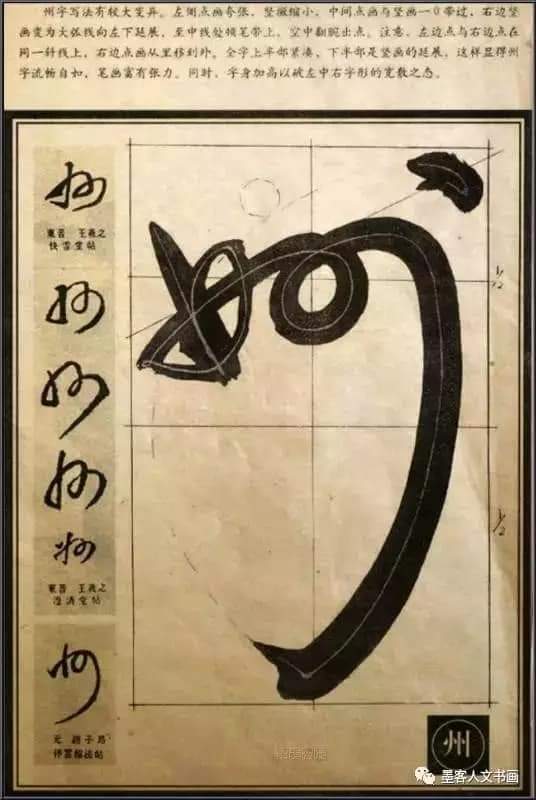 州字写法有较大变异。左侧点画夸张，竖撇缩小，中间点画与竖画一O带过，右边竖
画变为大弧线向左下延展，至中线处领笔带上，空中翻腕出点。注意，左边点与右边点在
同一斜线上，右边点画从里移到外。全字上半部紧凑，下半部是竖画的延展，这样显得州
字流畅自如，笔画富有张力。同时，字身加高以破左中右字形的宽散之态。
州
東晋 王羲之
快雪堂帖
州
州
州
州
東晋 王羲之
澄清堂帖
州
元
州
1/2
1/2
州
墨客人文书画